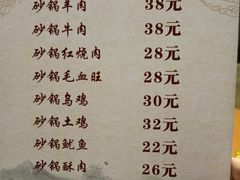 砂锅羊肉 38元
砂锅牛肉 38元
砂锅红烧肉 28元
砂锅毛血旺 28元
砂锅乌鸡 30元
砂锅土鸡 32元
砂锅鱿鱼 22元
砂锅酥肉 26元